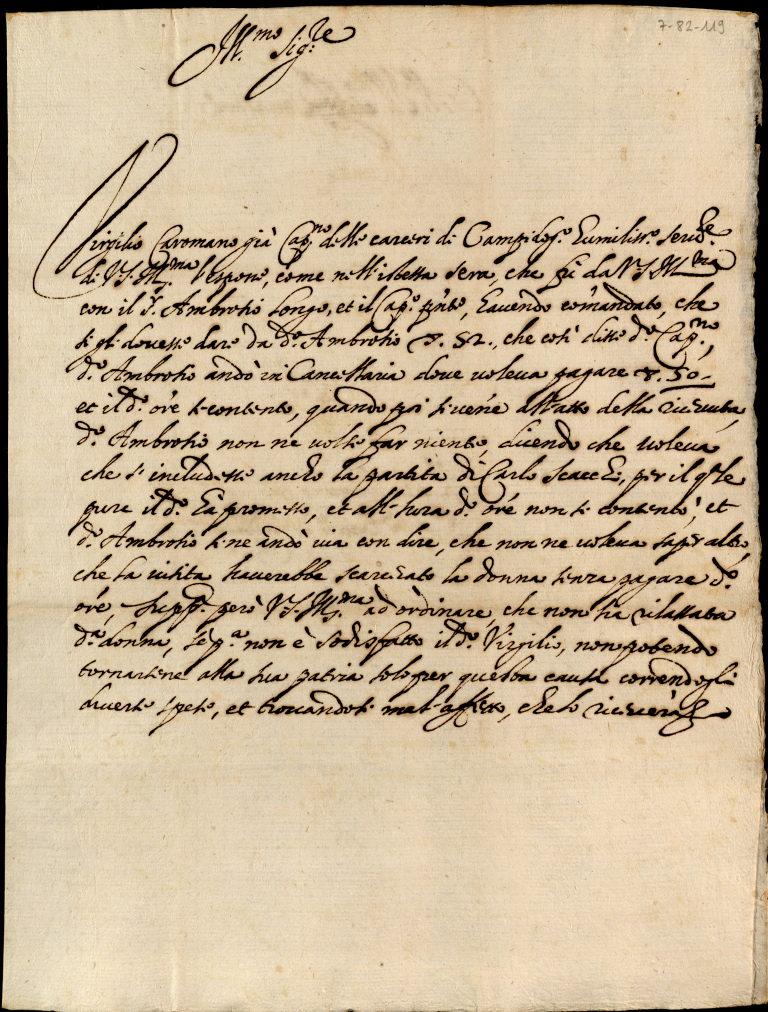 7-82-119
Ill.mo Sig.re
Virgilio Caromano già Cap.no delle carceri di Campidog.o humiliss.o serv.re
di V.S. Ill.ma l'espone, come nell'istessa sera, che fù da V.S. Ill.ma
con il S.r Ambrosio Longo, et il Cap.o pnte, havendo comandato, che
se gli dovesse dare da d.o Ambrosio 52., che così disse d.o Cap.no,
d.o Ambrosio andò in Cancellaria dove voleva pagare 50.
et il d.o ore se contentò, quando poi si venne all'atto della ricevuta,
d.o Ambrosio non ne volse far niente, dicendo che voleva
che s'includesse ancho la partita di Carlo Scacchi, per il qle
pure il d.o ha promesso, et all'hora d.o ore non se contentò, et
d.o Ambrosio se ne andò via con dire, che non ne voleva saper altro,
che la visita haverebbe scarcerato la donna senza pagare d.o
ore, supp.ca però V.S. Ill.ma ad ordinare, che non sia rilassata
d.a donna, se p.a non è sodisfatto il d.o Virgilio, non potendo
tornarsene alla sua patria solo per questa causa correndogli
diverse spese, et trovandosi mal'affetto, che lo riceverà